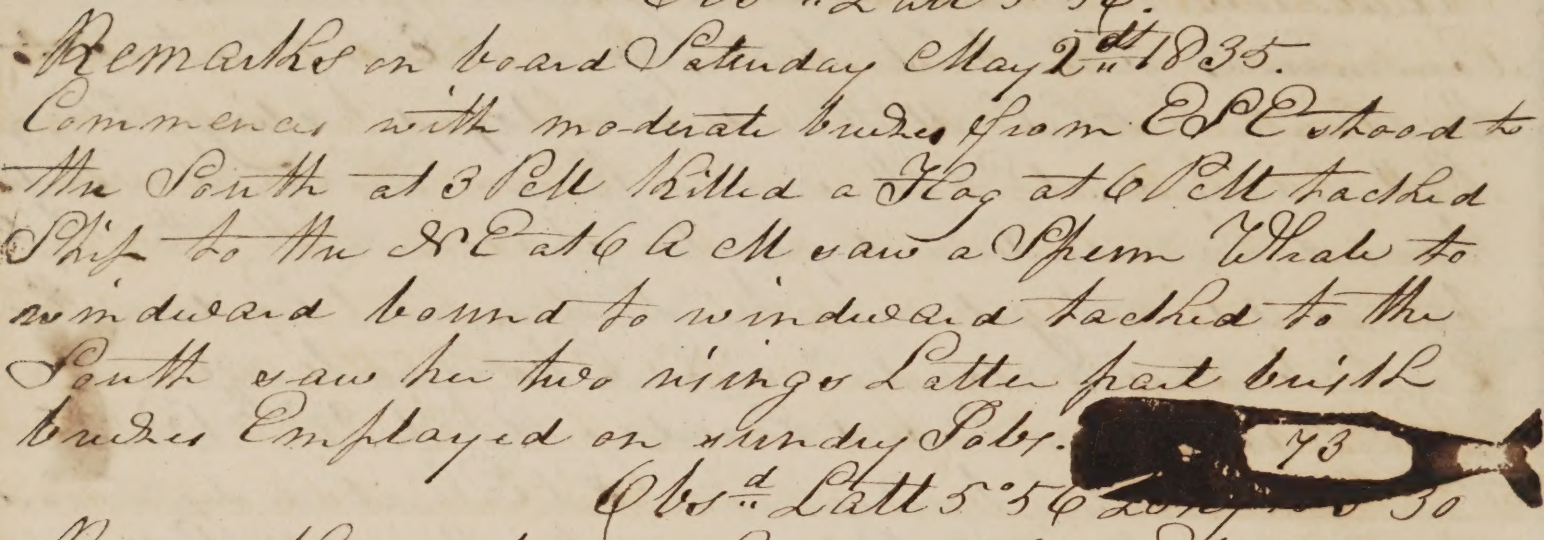 Obsd Latt 5 56.
Remarks on board Saturday May 2dt 1835.
Commences with moderate breezes from ESE stood to
the South at 3 PM Killed a Hog at 6 PM tacked
Ship to the NE at 6 AM saw a Sperm Whale to
windward bound to windward tacked to the
South saw her two risings Latter part brisk
breezes Employed on sundry Jobs.
73
Obsd Latt 5°56 30